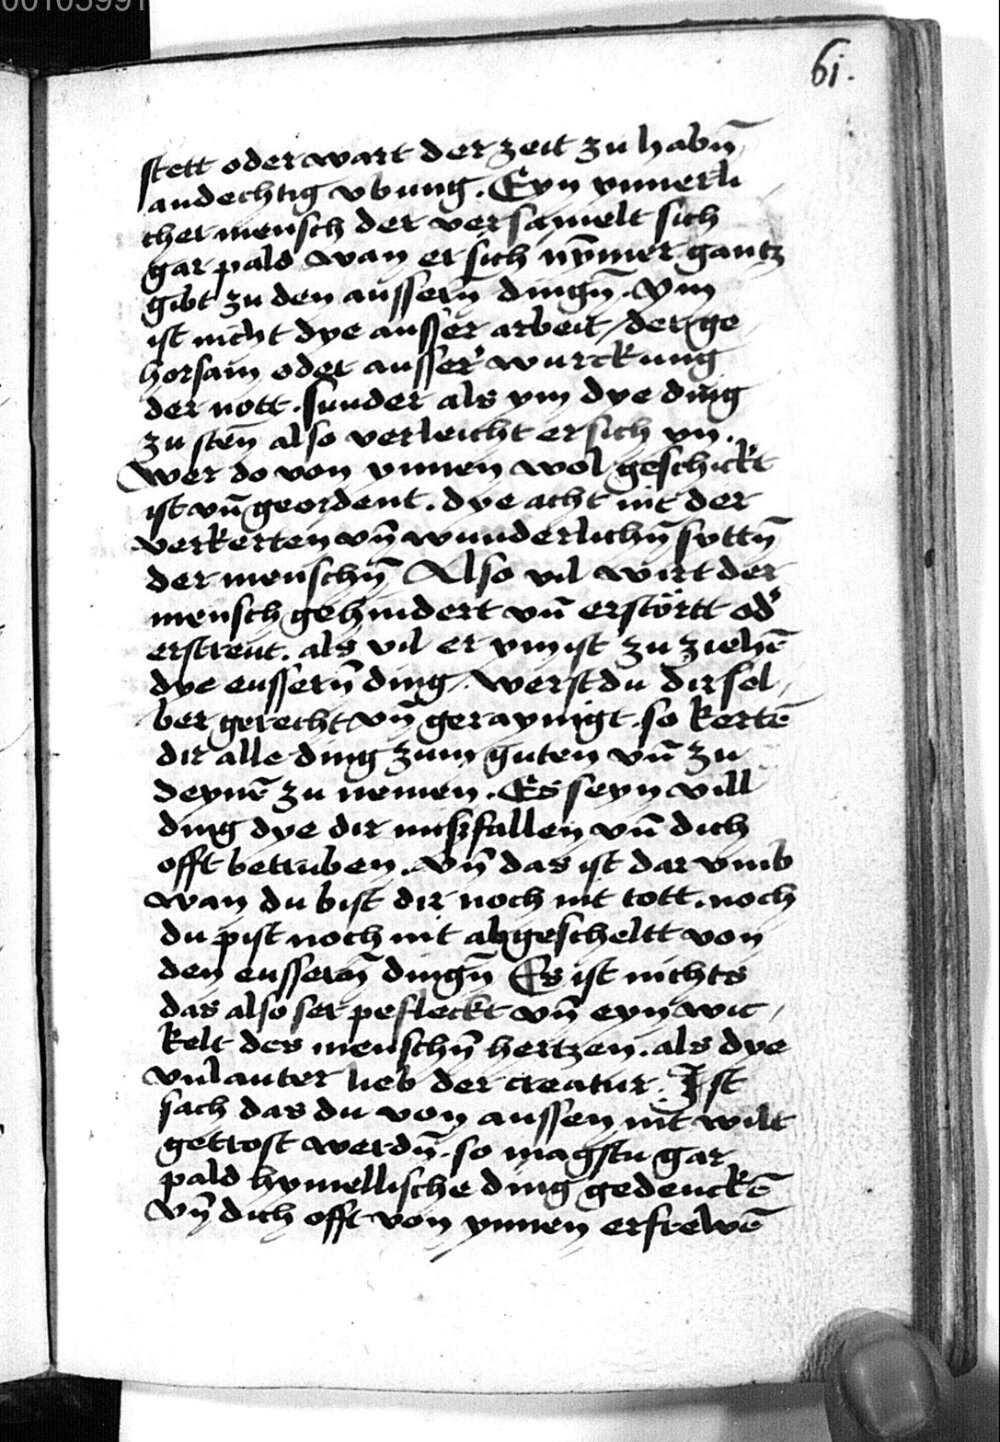 00103991
61.
stett oder wart der zeit zu habn̄
andechtig vbung. Eyn ynnerli
cher mensch der versamelt sich
gar pald wan er sich nȳmer gantz
gibt zu den aussern̄ dingn̄. Vm
ist nicht dye ausser arbeit / der ge
horsam oder ausser wurckung
der nott. sunder als ym dye ding
zu sten̄ also verleicht er sich yn.
Wer do von ynnen wol geschickt
ist vn̄ geordent. dye acht nit der
verkerten vn̄ wunderlichn̄ syttn̄
der menschn̄ Also vil wirt der
mensch gehindert vn̄ erstörtt od'
erstreut. als vil er ym ist zu ziehē
dye eussern̄ ding. Werstdu dir sel
ber gerecht vn̄ geraynigt. so kertē
dir alle ding zum guten vn̄ zu
deynē zu nemen. Es seyn vill
ding dye dir misfallen vn̄ dich
offt betruben. vn̄ das ist dar vmb
wan du bist dir noch nit tott. noch
du pist noch nit abgescheltt von
den eussern̄ dingn̄ Es ist nichts
das also ser pefleckt vn̄ eyn wic
kelt des menschn̄ hertzen. als dye
vnlauter lieb der creatur. Ist
sach das du von aussen nit wilt
getrost werdn̄. so magstu gar
pald hymellische ding gedenckē
vn̄ dich offt von ynnen erfrewē